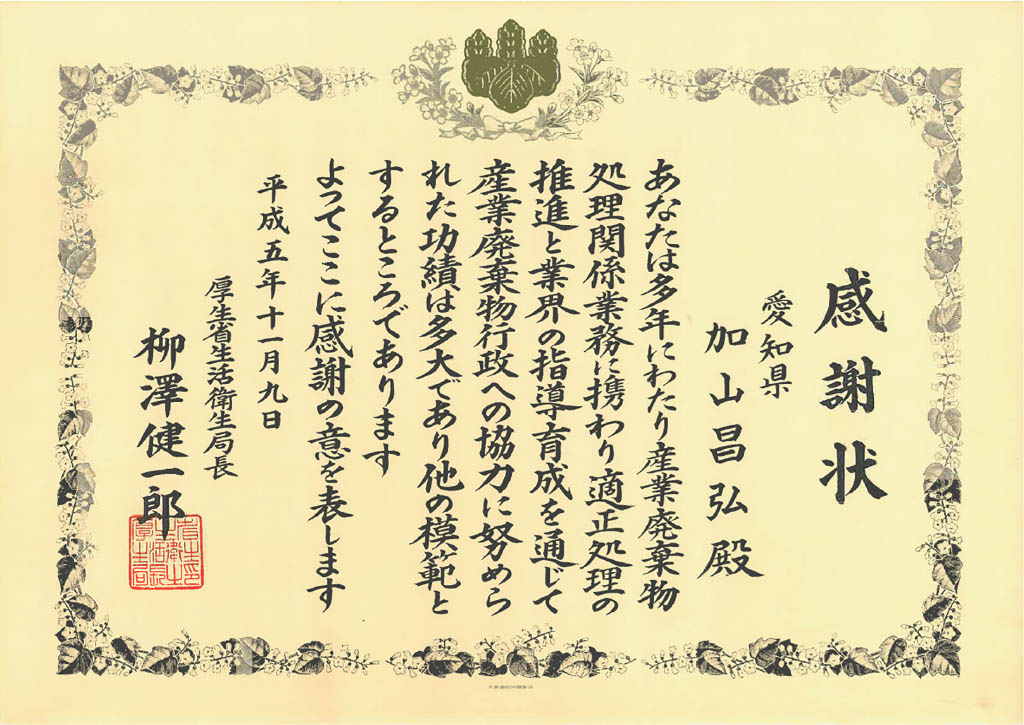 感謝状
愛知県
加山昌弘殿
あなたは多年にわたり産業廃棄物
処理関係業務に携わり適正処理の
推進と業界の指導育成を通じて
産業廃棄物行政への協力に努めら
れた功績は多大であり他の模範と
するところであります
よってここに感謝の意を表します
平成五年十一月九日
厚生省生活衛生局長
柳澤健一郎